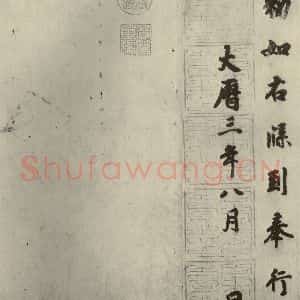 勑如右牒到奉行
大曆三年八月 日
Shufawang.CN